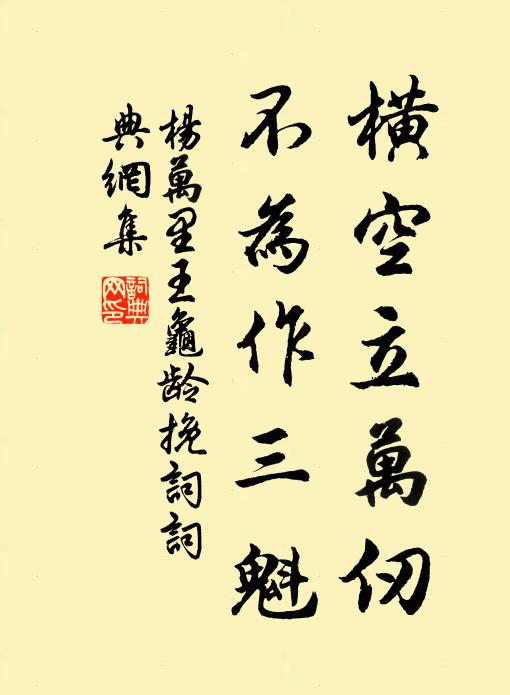 橫空立萬仞
不為作三魁
楊萬里王龜齡挽詞詞
典網集
詞典
网印